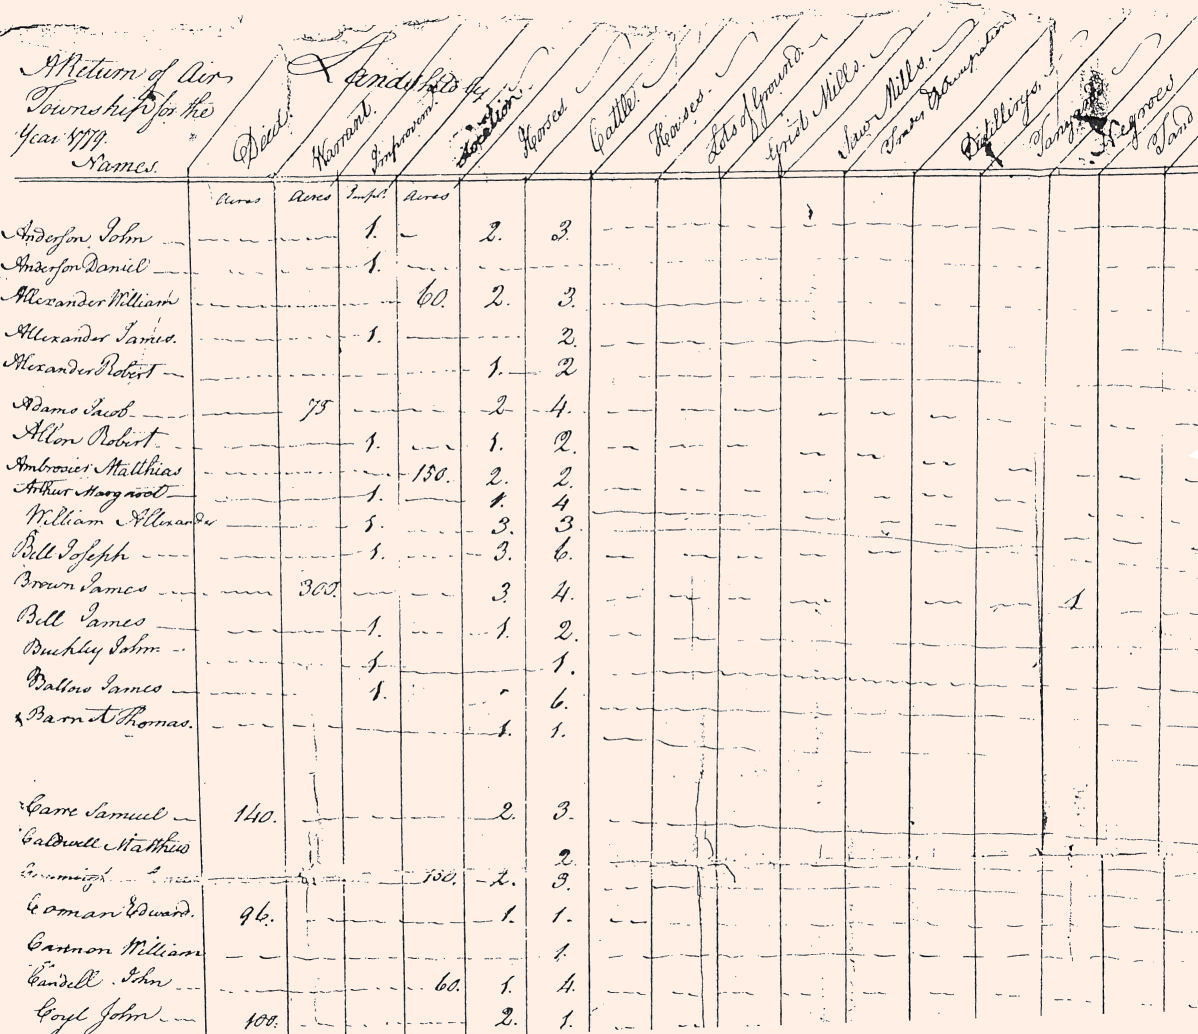 A Return of Air
Township for the
Year 1779.
Names.
Lands held by
Deed. Warrant. Improvem. Location. Horses. Cattle. Houses. Lots of Ground. Grist Mills. Saw Mills. Trades Distillings. Negroes
Acres Acres Impt. Acres
Anderson John 1. 2. 3.
Anderson Daniel 1.
Allexander William 60. 2. 3.
Allexander James. 1. 2.
Alexander Robert 1. 2
Adams Jacob 75 2 4.
Alton Robert 1. 1. 2.
Ambrosier Matthias 150. 2. 2.
Arthur Margaret 1. 1. 4
William Allexander 1. 3. 3.
Bell Joseph 1. 3. 6.
Brown James 300. 3 4. 1
Bell James 1. 1. 2.
Buckley John 1 1.
Ballow James 1. 6.
Barnet Thomas. 1. 1.
Carre Samuel 140. 2. 3.
Caldwell Matthew 2.
150. 2. 3.
Coman Edward. 96. 1. 1.
Cannon William 1.
Candell John 60. 1. 4.
Coyl John 100. 2. 1.